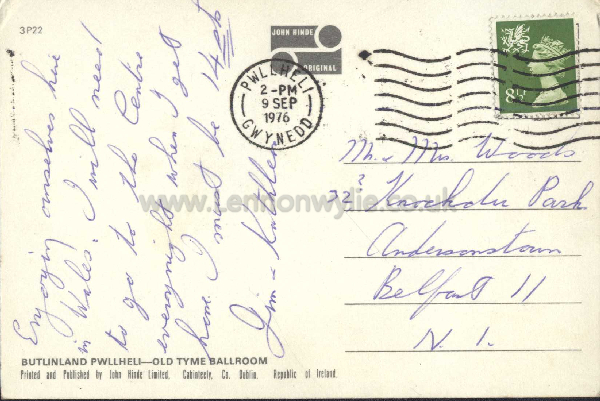 3P22
JOHN HINDE
ORIGINAL
PWLLHELI
2-PM
9 SEP
1976
GWYNEDD
8½
Enjoying ourselves here
in Wales. I will need
to go to the Centre
everynight when I get
home. I must be 14 sts
Jim - Kathleen
Mr & Mrs. Woods
32? Knockdhu Park
Andersonstown
Belfast 11
N. I.
www.Lennonwylie.co.uk
BUTLINLAND PWLLHELI—OLD TYME BALLROOM
Printed and Published by John Hinde Limited, Cabinteely, Co. Dublin, Republic of Ireland.